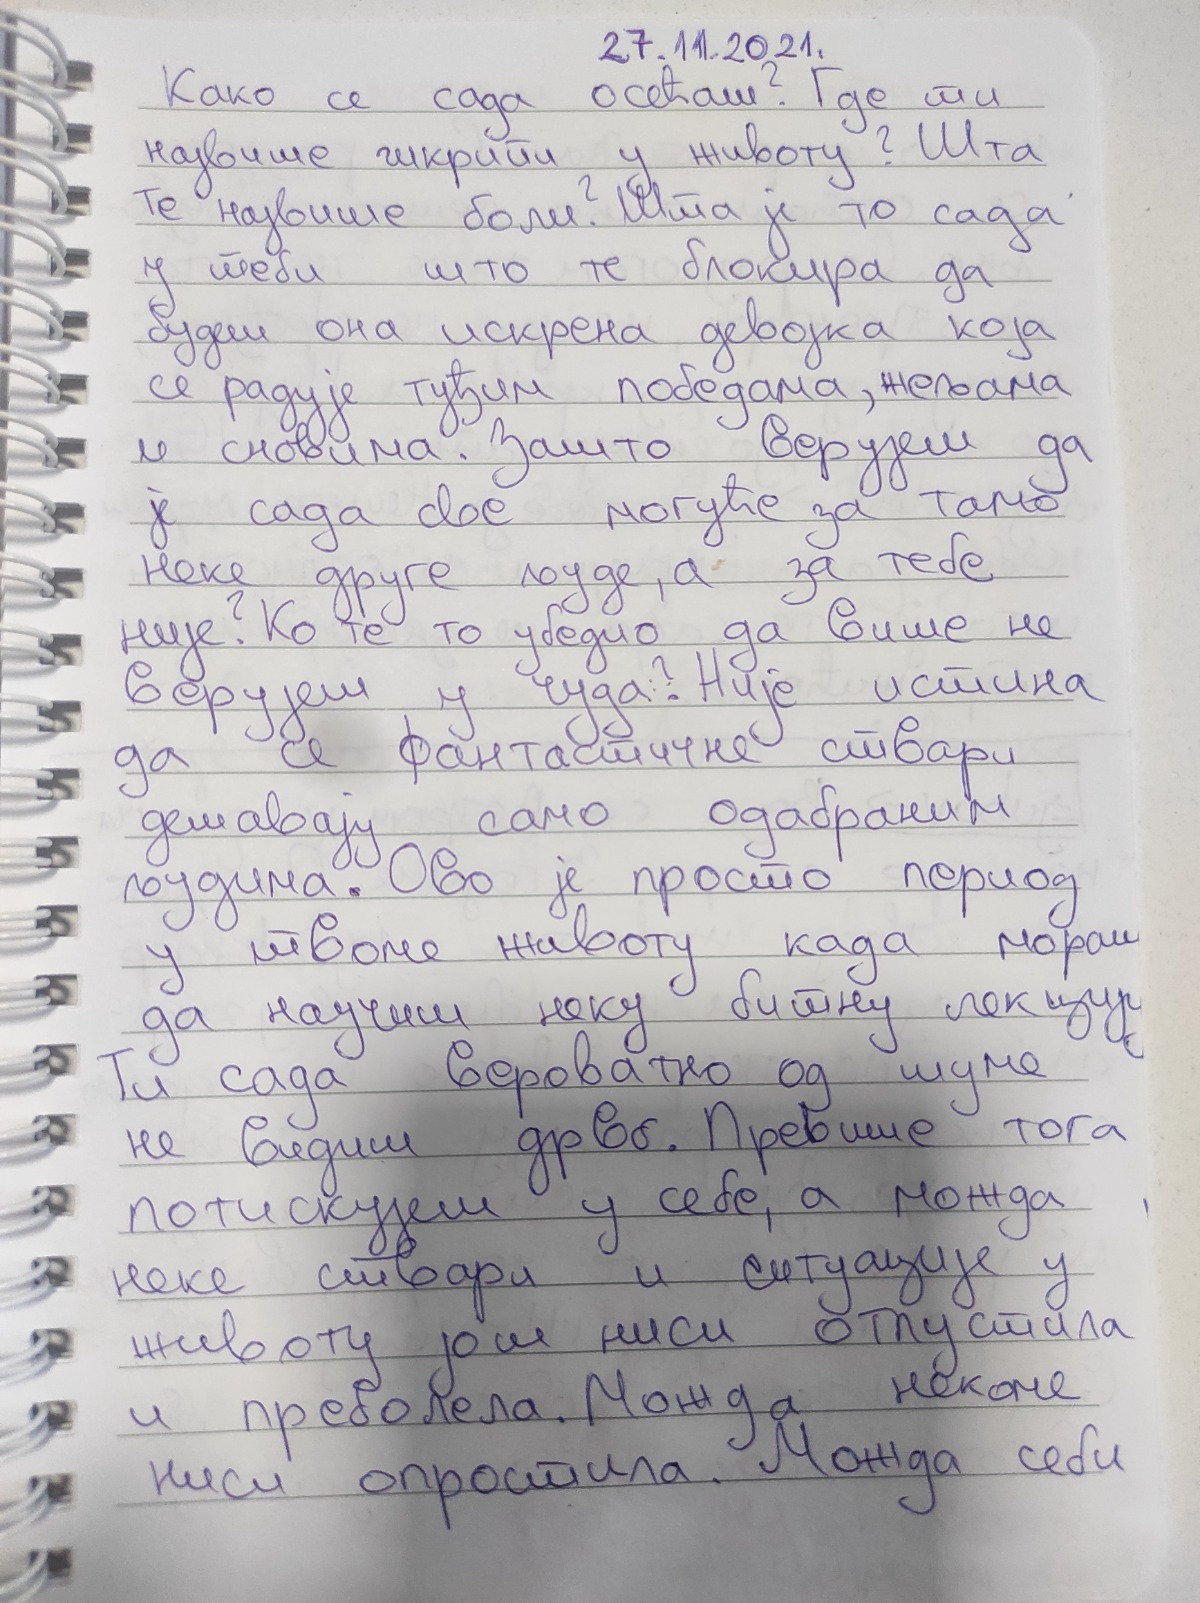 27.11.2021.
Како се сада осећаш? Где ти
највише шкрипи у животу? Шта
те највише боли? Шта је то сада
у теби што те блокира да
будеш она искрена девојка која
се радује туђим победама, жељама
и сновима. Зашто верујеш да
је сада све могуће за тамо
неке друге људе, а за тебе
није? Ко те то убедио да више не
верујеш у чуда? Није истина
да се фантастичне ствари
дешавају само одабраним
људима. Ово је просто период
у твоме животу када мораш
да научиш неку битну лекцију
Ти сада вероватно од шуме
не видиш дрво. Превише тога
потискујеш у себе, а можда
неке ствари и ситуације у
животу још ниси отпустила
и преболела. Можда некоме
ниси опростила. Можда себи